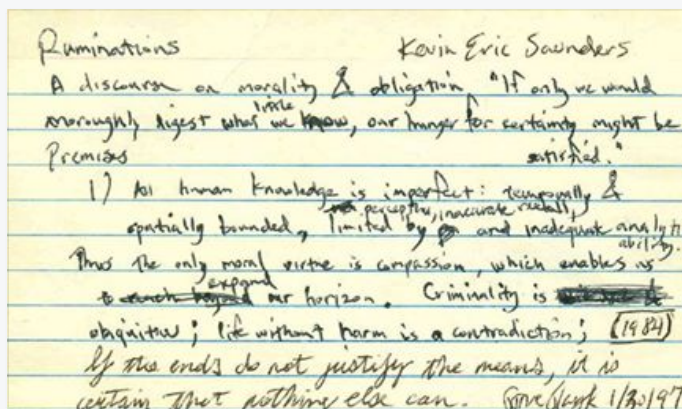 Ruminations Kevin Eric Saunders
A discourse on morality & obligation "If only we would
thoroughly digest what little we know, our hunger for certainty might be
Premises satisfied."
1) All human knowledge is imperfect: temporally &
spatially bounded, limited by perception, inaccurate recall, and inadequate analyt
ability.
Thus the only moral virtue is compassion, which enables us
to expand our horizon. Criminality is
obiquitous; life without harm is a contradiction; (1984)
If the ends do not justify the means, it is
certain that nothing else can. 1/30/97